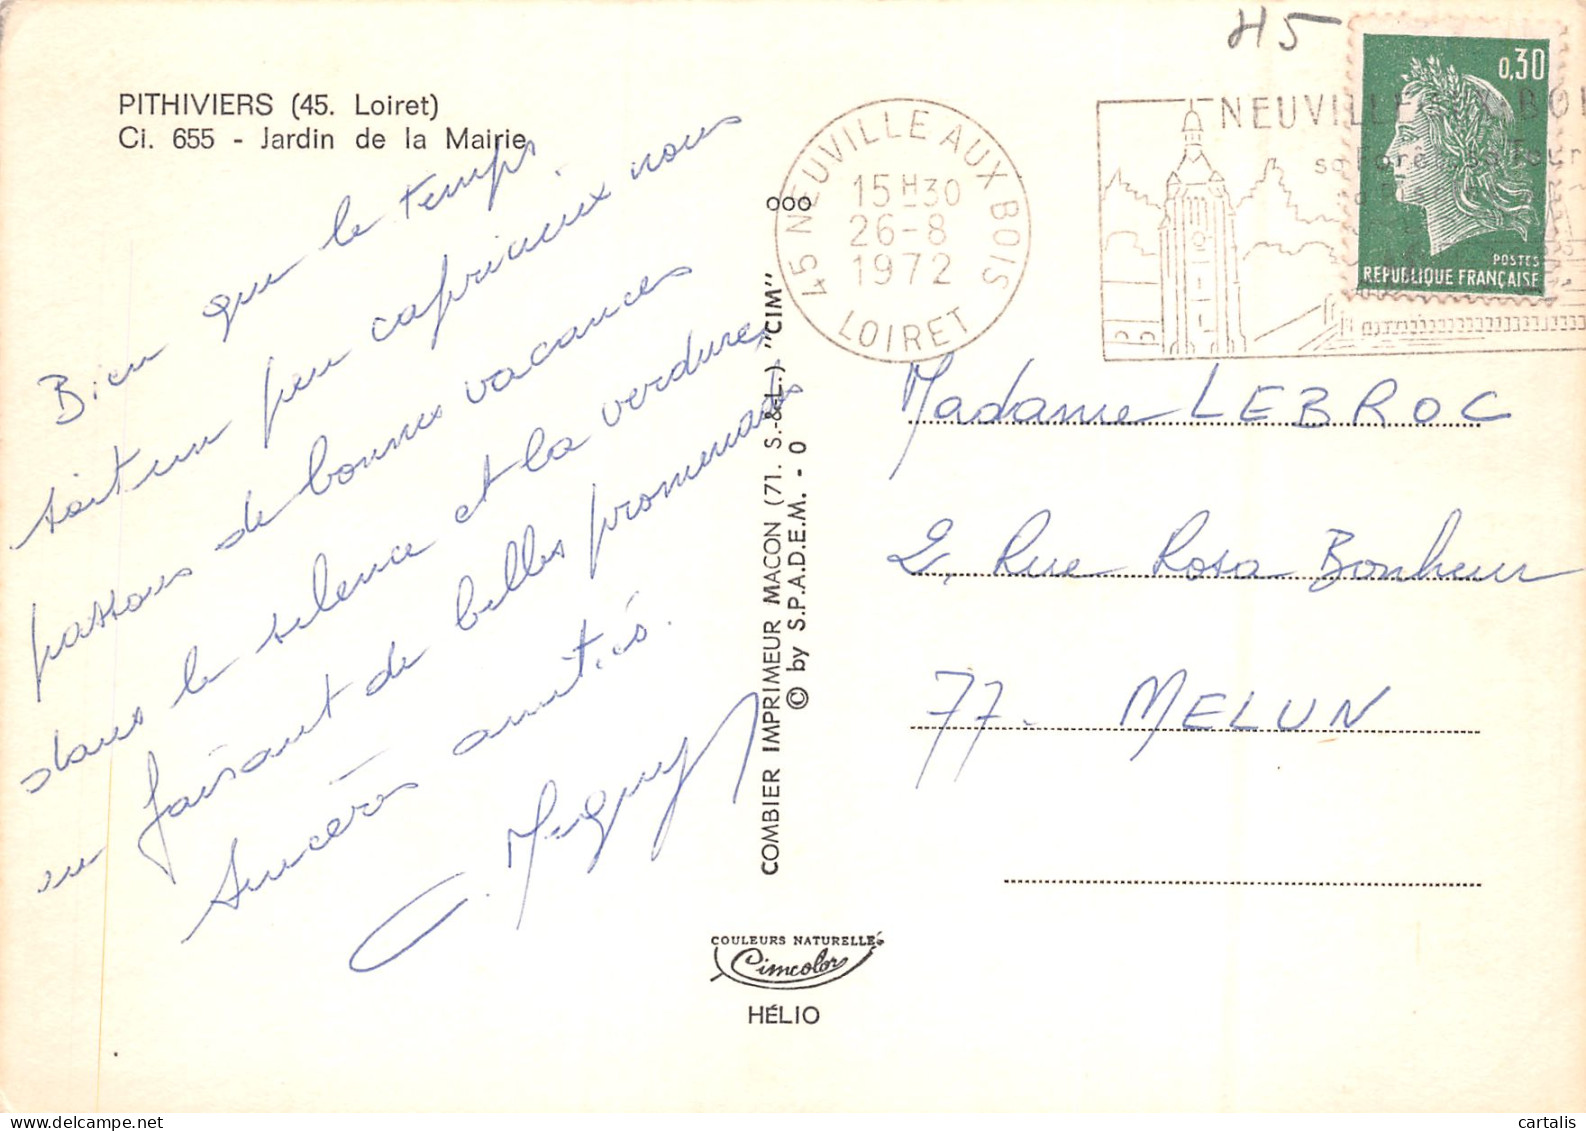 H5
PITHIVIERS (45. Loiret)
Ci. 655 - Jardin de la Mairie
Bien que le temps
soit un peu capricieux nous
passons de bonnes vacances
dans le silence et la verdure,
en faisant de belles promenades
Sincères amitiés.
45 NEUVILLE AUX BOIS
15H30
26-8
1972
LOIRET
NEUVILLE
sa forêt sa Tour
0,30
POSTES
REPUBLIQUE FRANÇAISE
Madame LEBROC
2, Rue Rosa Bonheur
77- MELUN
COMBIER IMPRIMEUR MACON (71. S.-&-L.) "CIM"
© by S.P.A.D.E.M. - 0
COULEURS NATURELLES
Cimcolor
HÉLIO
cartalis